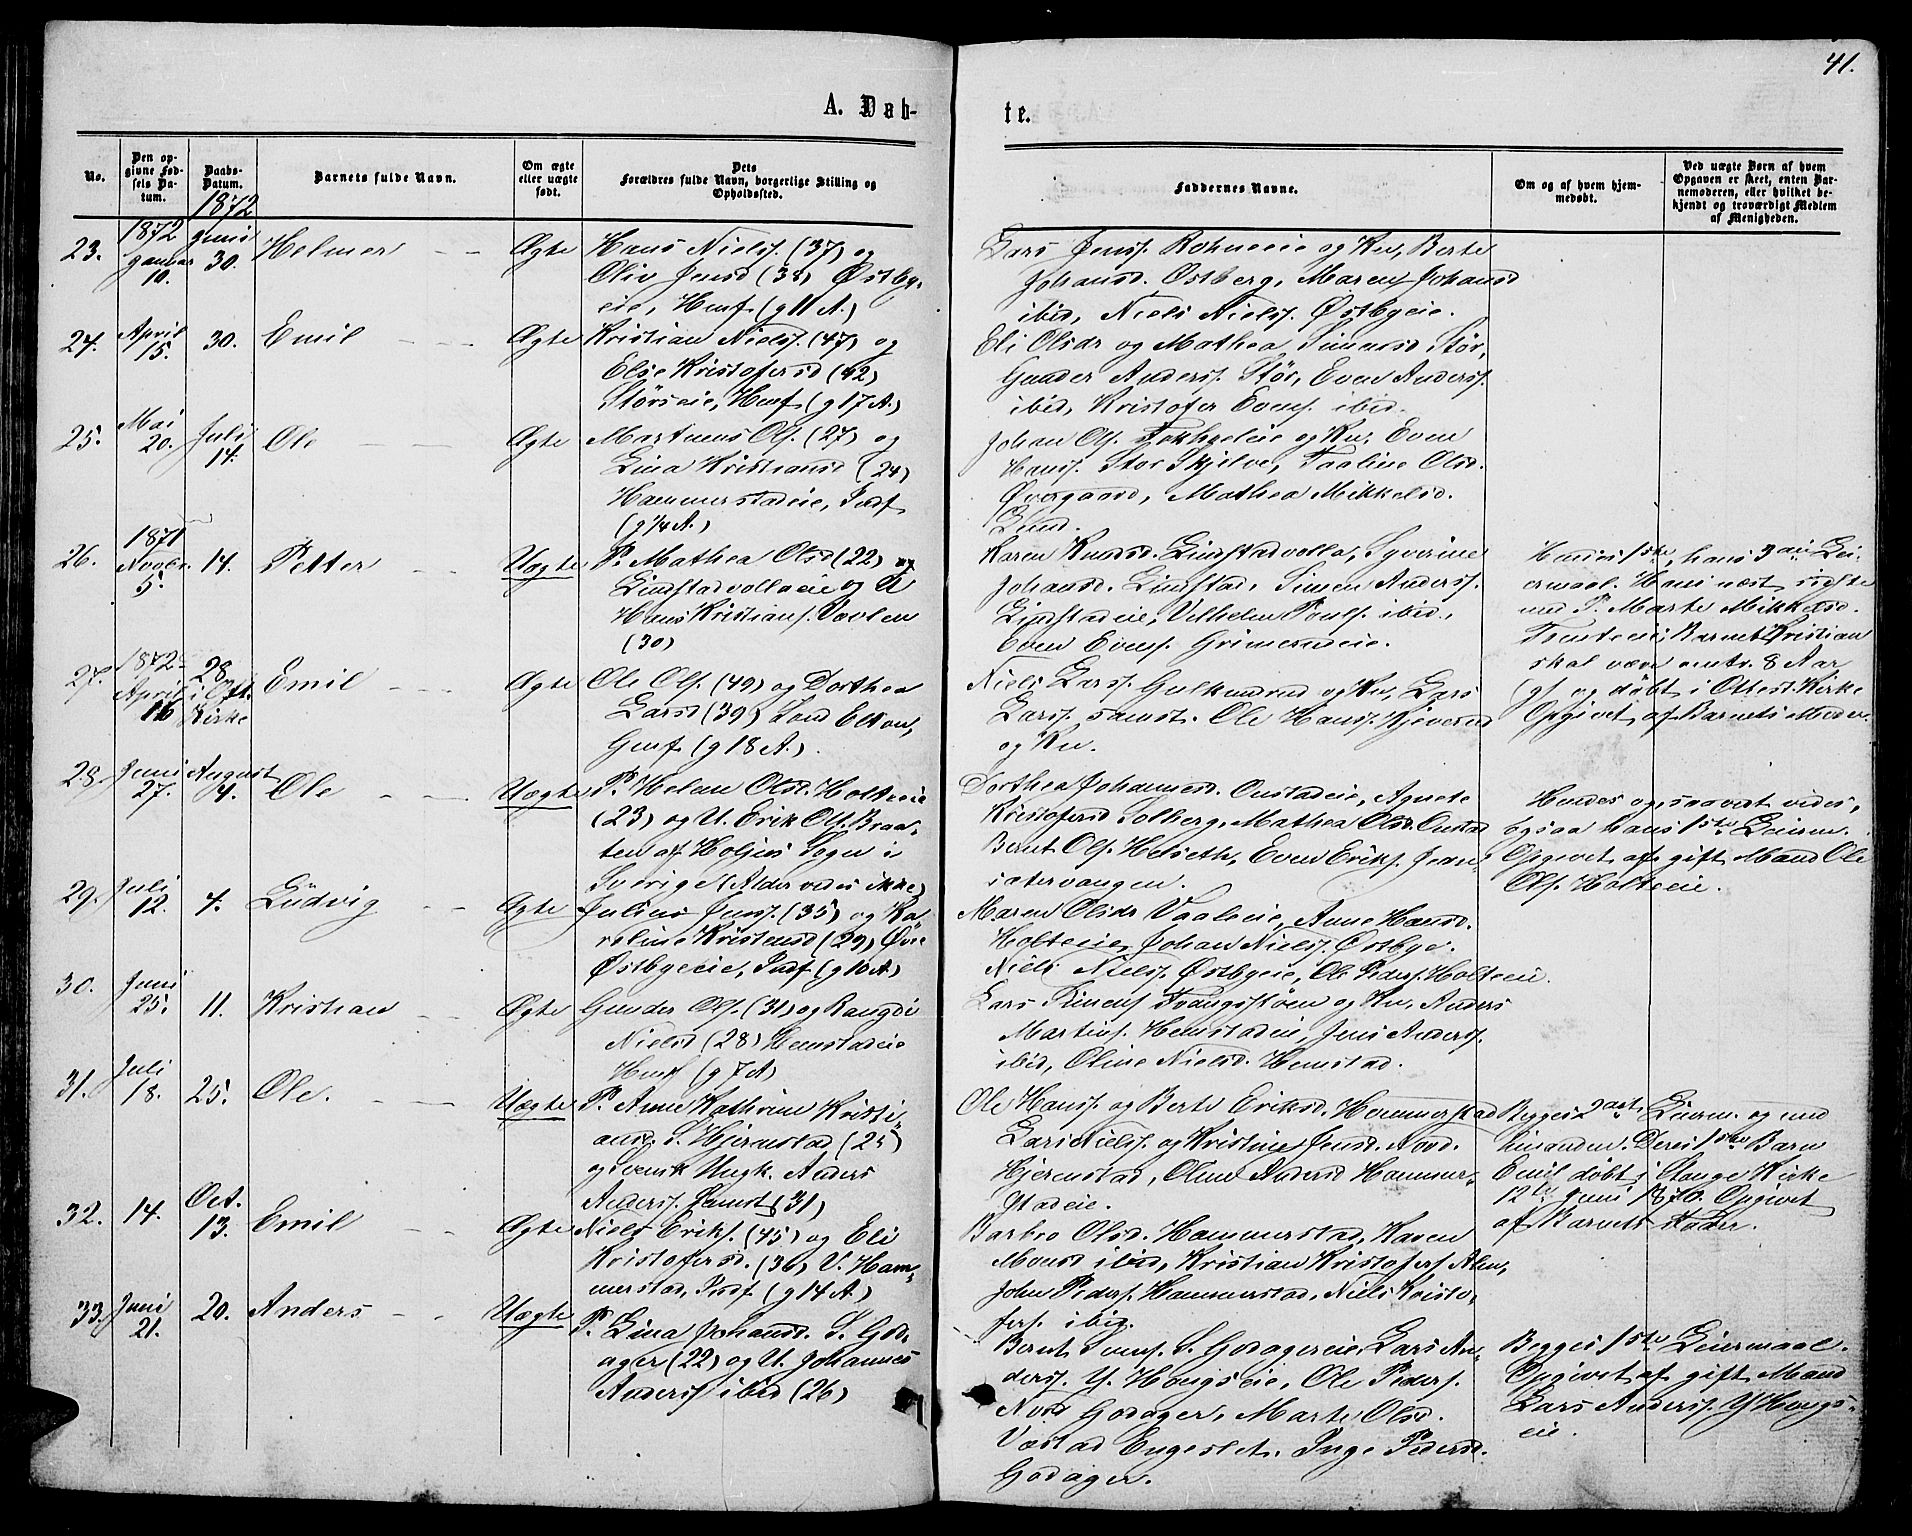 41.
A. Døb-
te.
No.
Den op-
givne Fød-
sels Da-
tum.
Daabs-
Datum.
Barnets fulde Navn.
Om ægte
eller uægte
født.
Dets
Forældres fulde Navn, borgerlige Stilling og
Opholdssted.
Faddernes Navne.
Om og af hvem hjem-
medøbt.
Ved uægte Børn af hvem
Opgaven er skeet, enten Bar-
nemoderen, eller hvilket be-
kjendt og troværdigt Medlem
af Menigheden.
1872
23.
1872
Januar
10.
Juni
30.
Helmer
Ægte
Hans Nielsf. (37) og
Oliv Jensd (38) Østby-
eie, Husf (g 11 A.)
Lars Jensf. Rohneeie og Ku, Berte
Johansd. Ostberg, Maren Johansd
ibid, Niels Nielsf. Østbyeie.
24.
April
15.
30.
Emil
Ægte
Kristian Nielsf. (47) og
Else Kristofersd (42)
Størseie, Husf (g 17 A.)
Eli Olsdr og Mathea Simensd Stør,
Gunder Andersf. Stør, Even Andersf.
ibid, Kristofer Evensf. ibid.
25.
Mai
20.
Juli
14.
Ole
Ægte
Martinus Olsf. (27) og
Lina Kristiansd (24)
Hammerstadeie, Indf
(g 1/4 A.)
Johan Olsf. eie og Ku, Even
Hansf. Stor Skjelve, Taaline Olsd.
Øvergaard, Mathea Mikkelsd.
Lund.
26.
1871
Novbr.
5.
14.
Petter
Uægte
P. Mathea Olsd (22)
Lindstadvolleie og U
Hans Kristiansf. Vaalen
(30)
Karen Knudsd. Lindstadvolla, Syverine
Johansd. Lindstad, Simen Andersf.
Lindstadeie, Vilhelm Poulsf. ibid.,
Even Evensf. Grimerudeie.
Hendes 1ste, hans 3die Lei-
ermaal. Hans næst sidste
med P. Marte Mikkelsd.
Barnet Kristian
skal være omtr. 8 Aar
gl. og døbt i Ottest. Kirke
Opgivet af Barnets Moder.
27.
1872
April
16
28
i Ott.
Kirke
Emil
Ægte
Ole Olsf. (49) og Dorthea
Larsd (39) Sond Elton,
Gmf (g 18 A.).
Niels Larsf. Gulknudrud og Ku, Lars
Larsf. samst. Ole Hansf.
og Ku.
28.
Juni
27.
August
4.
Ole
Uægte
P. Helene Olsd. Holteeie
(23) og U. Erik Olsf. Braa-
ten af Holjes Sogn i
Sverige (Alder vides ikke)
Dorthea Johannesd. Onstadeie, Agnete
Kristofersd Solberg, Mathea Olsd. Onstad
Bernt Olsf. Helseth, Even Eriksf. Jøn-
sætervangen.
Hendes og, saavidt vides,
ogsaa hans 1ste Leierm.
Opgivet af gift Mand Ole
Olsf. Holteeie.
29.
Juli
12.
4.
Ludvig
Ægte
Julius Jensf. (35) og Ka-
roline Kristensd (29) Øvre
Østbyeeie, Indf. (g 10 A)
Maren Olsdr Vaaleeie, Anne Hansd.
Holteeie, Johan Nielsf. Østbye.
Niels Nielsf. Østbyeie, Ole Pedersf. Holteeie.
30.
Juni
25.
11.
Kristian
Ægte
Gunder Olsf. (31) og Rangdi
Nielsd (28) Hemstadeie
Husf (g 7 A)
Lars Simensf. Tvangsstøen og Ku, Anders
Martinsf. Hemstadeie, Jens Andersf.
ibid, Oline Nielsd. Hemstad.
31.
Juli
18.
25.
Ole.
Uægte
P. Anne Kathrine Kristi-
ansd. S. Hjernstad (25)
og Svensk Ungk. Anders
Andersf. samst (31)
Ole Hansf. og Berte Eriksd. Hammerstad
Lars Nielsf. og Kristine Jensd. Nord.
Hjernstad, Oline Andersd Hammer-
stadeie.
Begges 2det Leierm. og med
hinanden. Deres 1ste Barn
Emil døbt i Stange Kirke
12te Juni 1870. Opgivet
af Barnets Fader.
32.
14.
Oct.
13.
Emil
Ægte
Niels Eriksf. (45) og Eli
Kristofersd. (36) V. Ham-
merstad, Indf. (g 14 A.)
Barbro Olsd. Hammerstad, Karen
Monsd ibid, Kristian Kristofersf. Alm,
John Pedersf. Hammerstad, Niels Kristo-
fersf. ibid.
33.
Juni
21.
20.
Anders
Uægte
P. Lina Johansd. S. God-
ager (22) og U. Johannes
Andersf ibid (26)
Bernt Jensf. S. Godagereie, Lars An-
dersf. Y. Hougseie, Ole Pedersf.
Nord Godager, Marte Olsd.
Væstad Engeslet. Inge Pedersd.
Godager.
Begges 1ste Leiermaal.
Opgivet af gift Mand
Lars Andersf. Y Hougs-
eie.